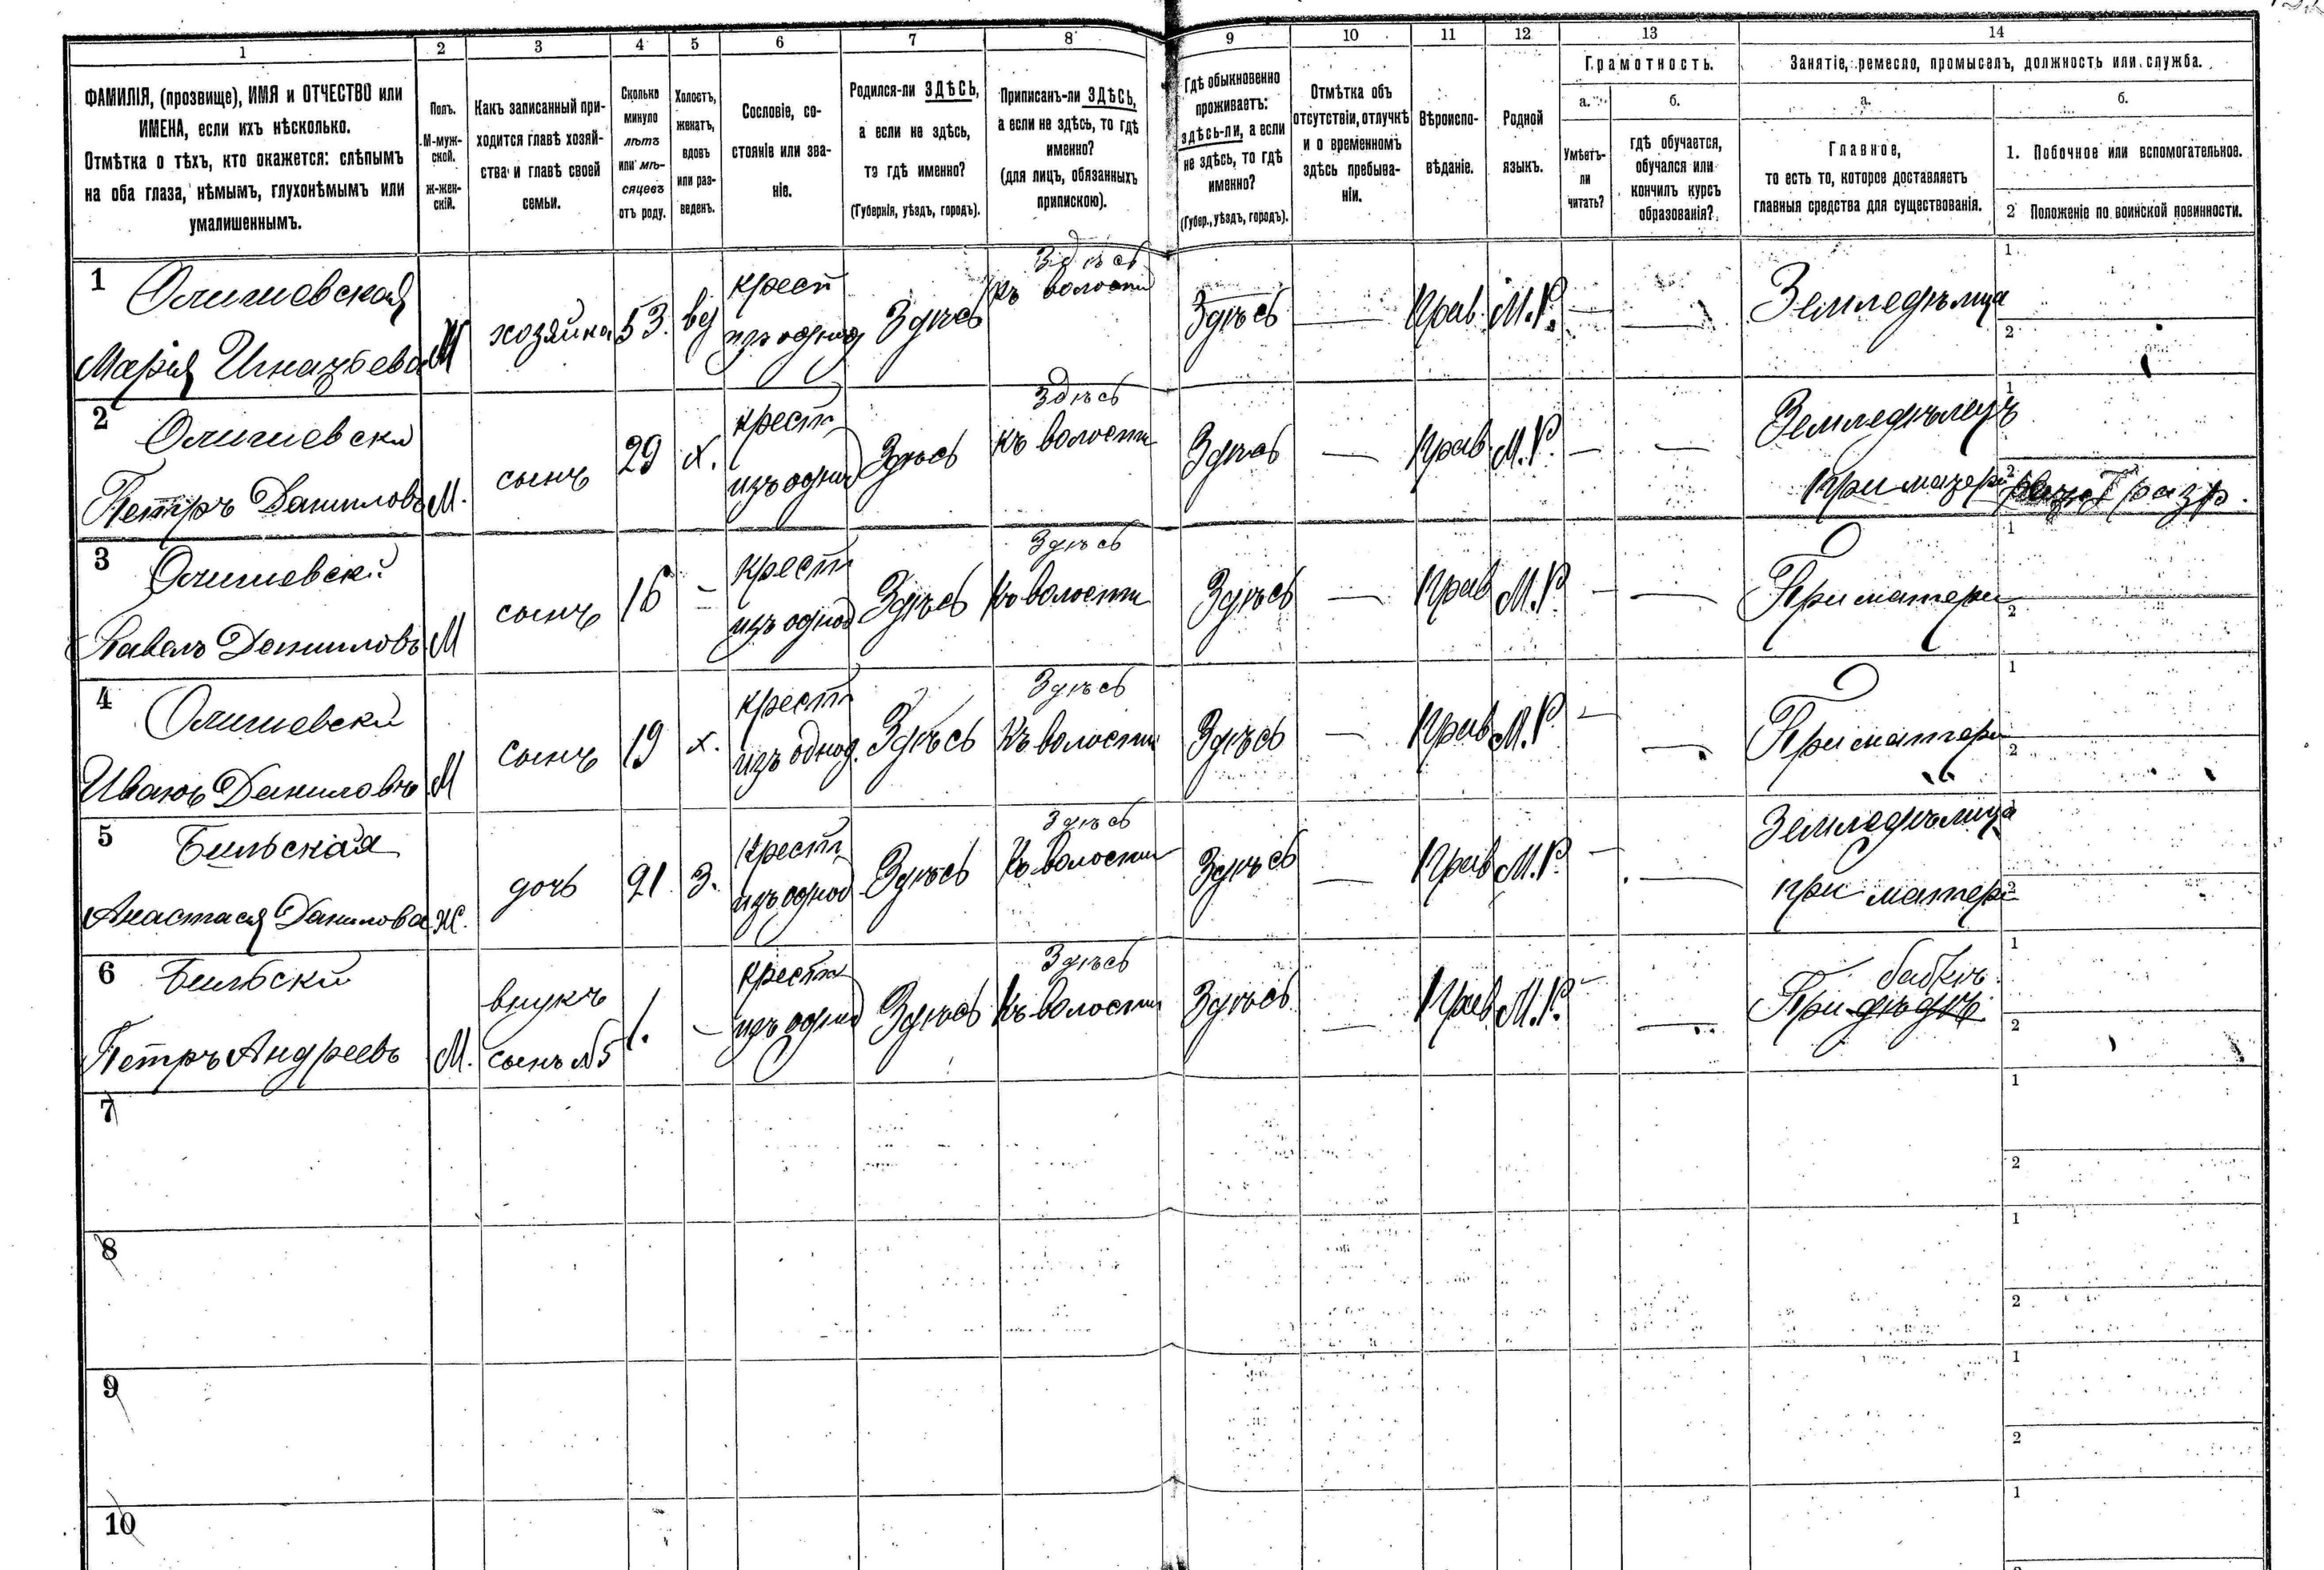 1 2 3 4 5 6 7 8 9 10 11 12 13 14
ФАМИЛІЯ, (прозвище), ИМЯ и ОТЧЕСТВО или
ИМЕНА, если ихъ нѣсколько.
Отмѣтка о тѣхъ, кто окажется: слѣпымъ
на оба глаза, нѣмымъ, глухонѣмымъ или
умалишеннымъ.
Полъ.
М-муж-
ской.
Ж-жен-
скій.
Какъ записанный при-
ходится главѣ хозяй-
ства и главѣ своей
семьи.
Сколько
минуло
лѣтъ
или мѣ-
сяцевъ
отъ роду.
Холостъ,
женатъ,
вдовъ
или раз-
веденъ.
Сословіе, со-
стояніе или зва-
ніе.
Родился-ли ЗДѢСЬ,
а если не здѣсь,
то гдѣ именно?
(Губернія, уѣздъ, городъ).
Приписанъ-ли ЗДѢСЬ,
а если не здѣсь, то гдѣ
именно?
(для лицъ, обязанныхъ
припискою).
Гдѣ обыкновенно
проживаетъ:
здѣсь-ли, а если
не здѣсь, то гдѣ
именно?
(Губер., уѣздъ, городъ).
Отмѣтка объ
отсутствіи, отлучкѣ
и о временномъ
здѣсь пребыва-
ніи.
Вѣроиспо-
вѣданіе.
Родной
языкъ.
Грамотность.
а.
Умѣетъ-
ли
читать?
б.
гдѣ обучается,
обучался или
кончилъ курсъ
образованія?
Занятіе, ремесло, промыселъ, должность или служба.
а.
Главное,
то есть то, которое доставляетъ
главныя средства для существованія.
б.
1. Побочное или вспомогательное.
2 Положеніе по воинской повинности.
1
Марія Игнатьева
хозяйка 53. вд
крест
изъ однод
Здѣсь
Здѣсь
къ волости
Здѣсь — Прав. М.Р. — —
Земледѣлица
1
2
2
Петръ Даниловъ М.
сынъ 29 х.
крест
изъ однод
Здѣсь
Здѣсь
къ волости
Здѣсь — Прав М.Р. — —
Земледѣлецъ
при матери
1
2 разр.
3
Павелъ Даниловъ М
сынъ 16 —
крест
изъ однод
Здѣсь
Здѣсь
къ волости
Здѣсь — Прав М.Р. — —
При матери
1
2
4
Иванъ Даниловъ М
сынъ 19 х.
крест
изъ однод.
Здѣсь
Здѣсь
къ волости
Здѣсь — Прав М.Р. — —
При матери
1
2
5
Бильская
Анастасія Данилова Ж.
дочь 21 З.
крест
изъ однод
Здѣсь
Здѣсь
къ волости
Здѣсь — Прав М.Р. — —
Земледѣлица
при матери
1
2
6
Бильски
Петръ Андреевъ М.
внукъ
сынъ №5
1. —
крест
изъ однод
Здѣсь
Здѣсь
къ волости
Здѣсь — Прав М.Р. — —
бабкѣ
При дѣдѣ.
1
2
7
1
2
8
1
2
9
1
2
10
1